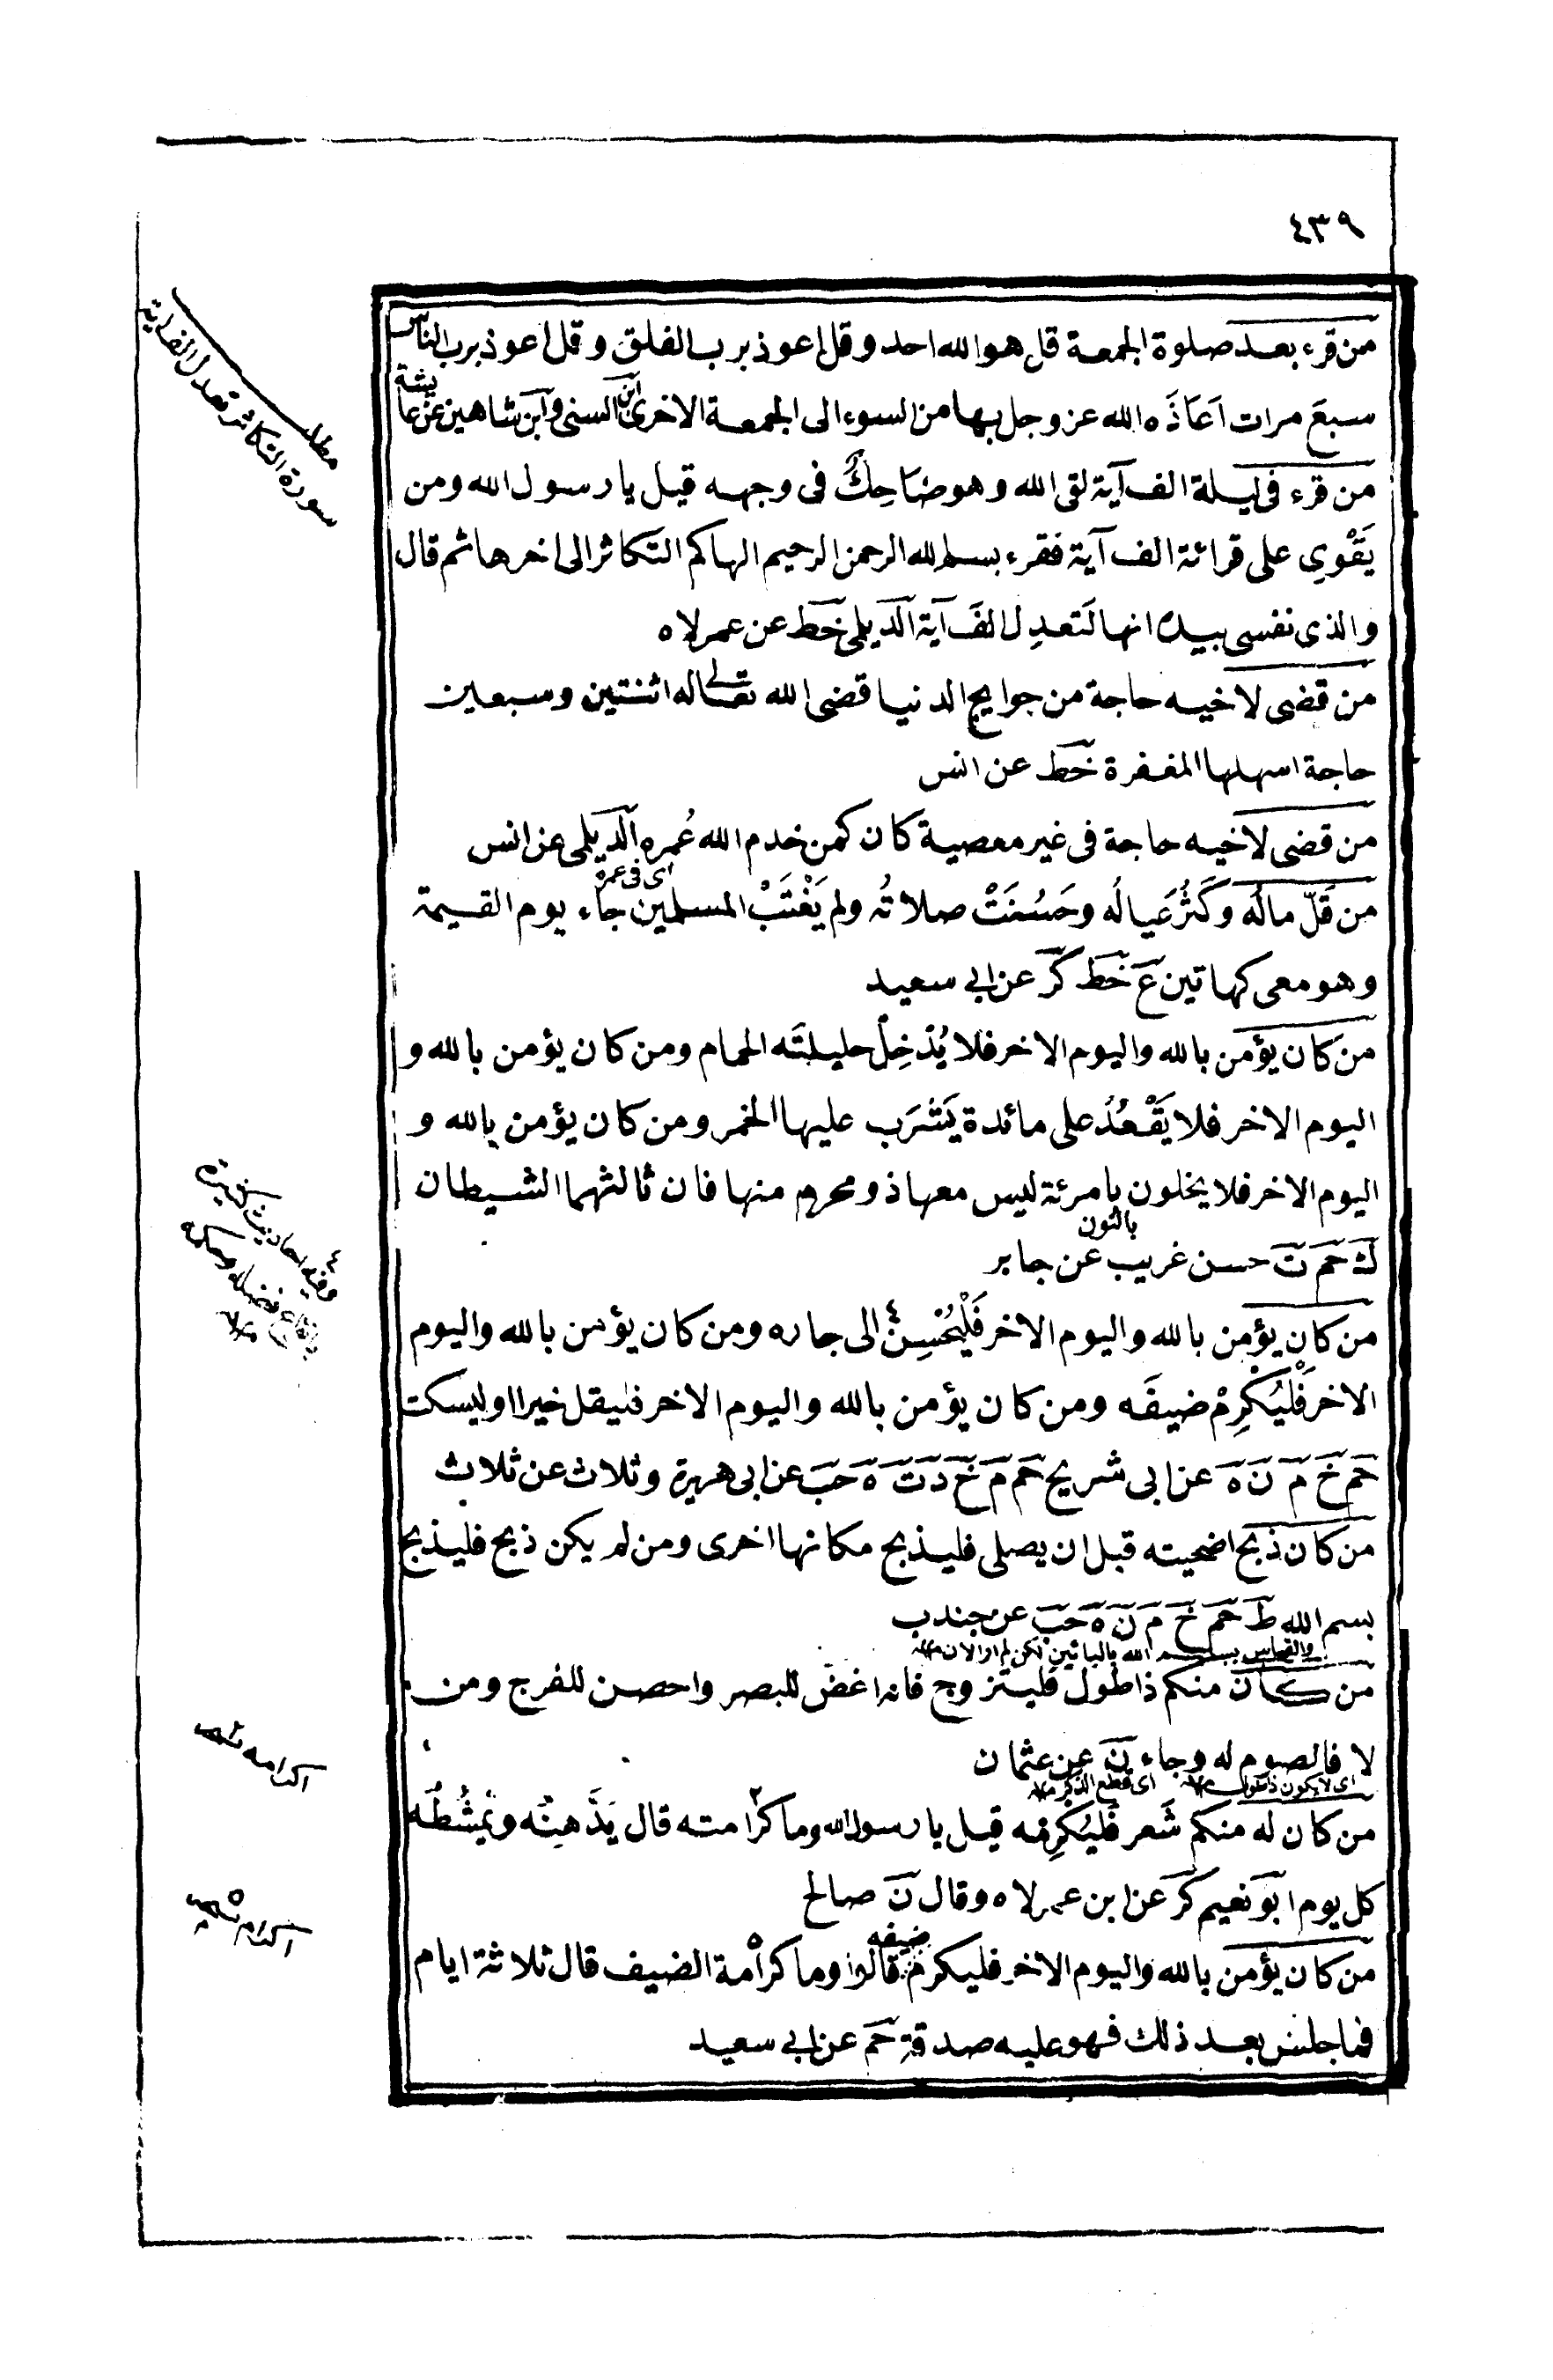 ٤٣٩
من قرء بعد صلوة الجمعة قل هو الله احد وقل اعوذ برب الفلق وقل اعوذ برب الناس
سبعَ مرات اَعَاذَه الله عز وجل بها من السوء الى الجمعة الاخرى ابن السنى وابن شاهين عن عايشة
من قرء فى ليلة الف آية لقى الله وهو ضاحِكٌ فى وجهه قيل يا رسول الله ومن
يَقْوِى على قرائة الف آية فقرء بسم الله الرحمن الرحيم الهاكم التكاثر الى اخرها ثم قال
والذى نفسى بيده انها لَتعدِل الفَ آية الديلمى خط عن عمر لاه
من قضى لاخيه حاجة من حوايج الدنيا قضى الله تعالى له اثنتين وسبعين
حاجة اسهلها المغفرة خط عن انس
من قضى لاخيه حاجة فى غير معصية كان كمن خدم الله عُمره الديلمى عن انس
اى فى عمره
من قَلّ مالُه وكَثُر عَيالُه وحَسُنَتْ صلاتُه ولم يَغْتَبْ المسلمين جاء يوم القيمة
وهو معى كهاتين ع خط كر عن ابى سعيد
من كان يؤمن بالله واليوم الاخر فلا يُدْخِلْ حليلتَه الحمام ومن كان يؤمن بالله و
اليوم الاخر فلا يَقْعُدْ على مائدة يَشْرَب عليها الخمر ومن كان يؤمن بالله و
اليوم الاخر فلا يخلون بامرئة ليس معها ذو محرم منها فان ثالثهما الشيطان
بالنون
ك حم ت حسن غريب عن جابر
من كان يؤمن بالله واليوم الاخر فَلْيُحْسِنْ٤ الى جاره ومن كان يؤمن بالله واليوم
الاخر فَلْيُكْرِمْ ضيفَه ومن كان يؤمن بالله واليوم الاخر فليقل خيرا او ليسكت
حم خ م ن ه عن ابى شريح حم م خ د ت ه حب عن ابى هريرة وثلاث عن ثلاث
من كان ذبح اضحيته قبل ان يصلى فليذبح مكانها اخرى ومن لم يكن ذبح فليذبح
بسم الله ط حم خ م ن ه حب عن جندب
من كان منكم ذا طول فليتزوج فانه اغض للبصر واحصن للفرج ومن
لا فالصوم له وجاء ن عن عثمان
اى لا يكون ذا طول اى قطع الذكر
من كان له منكم شَعر فَليُكرِمْه قيل يا رسول الله وما كرامته قال يَدَّهِنُه ويَمشُطُه
كل يوم ابو نعيم كر عن ابن عمر لاه وقال ن صالح
من كان يؤمن بالله واليوم الاخر فليكرم ضيفه قالوا وما كرامة الضيف قال ثلاثة ايام
فما جلس بعد ذلك فهو عليه صدقة حم عن ابى سعيد
مطلب
سورة التكاثر تعدل الف اية
وفيه احاديث كثيرة